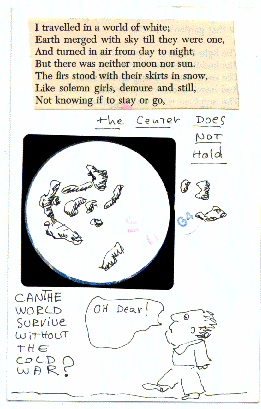 I travelled in a world of white;
Earth merged with sky till they were one,
And turned in air from day to night,
But there was neither moon nor sun.
The firs stood with their skirts in snow,
Like solemn girls, demure and still,
Not knowing if to stay or go,
the Center Does
NOT
Hold
CAN THE
WORLD
SURVIVE
WITHOUT
THE
COLD
WAR?
OH Dear!